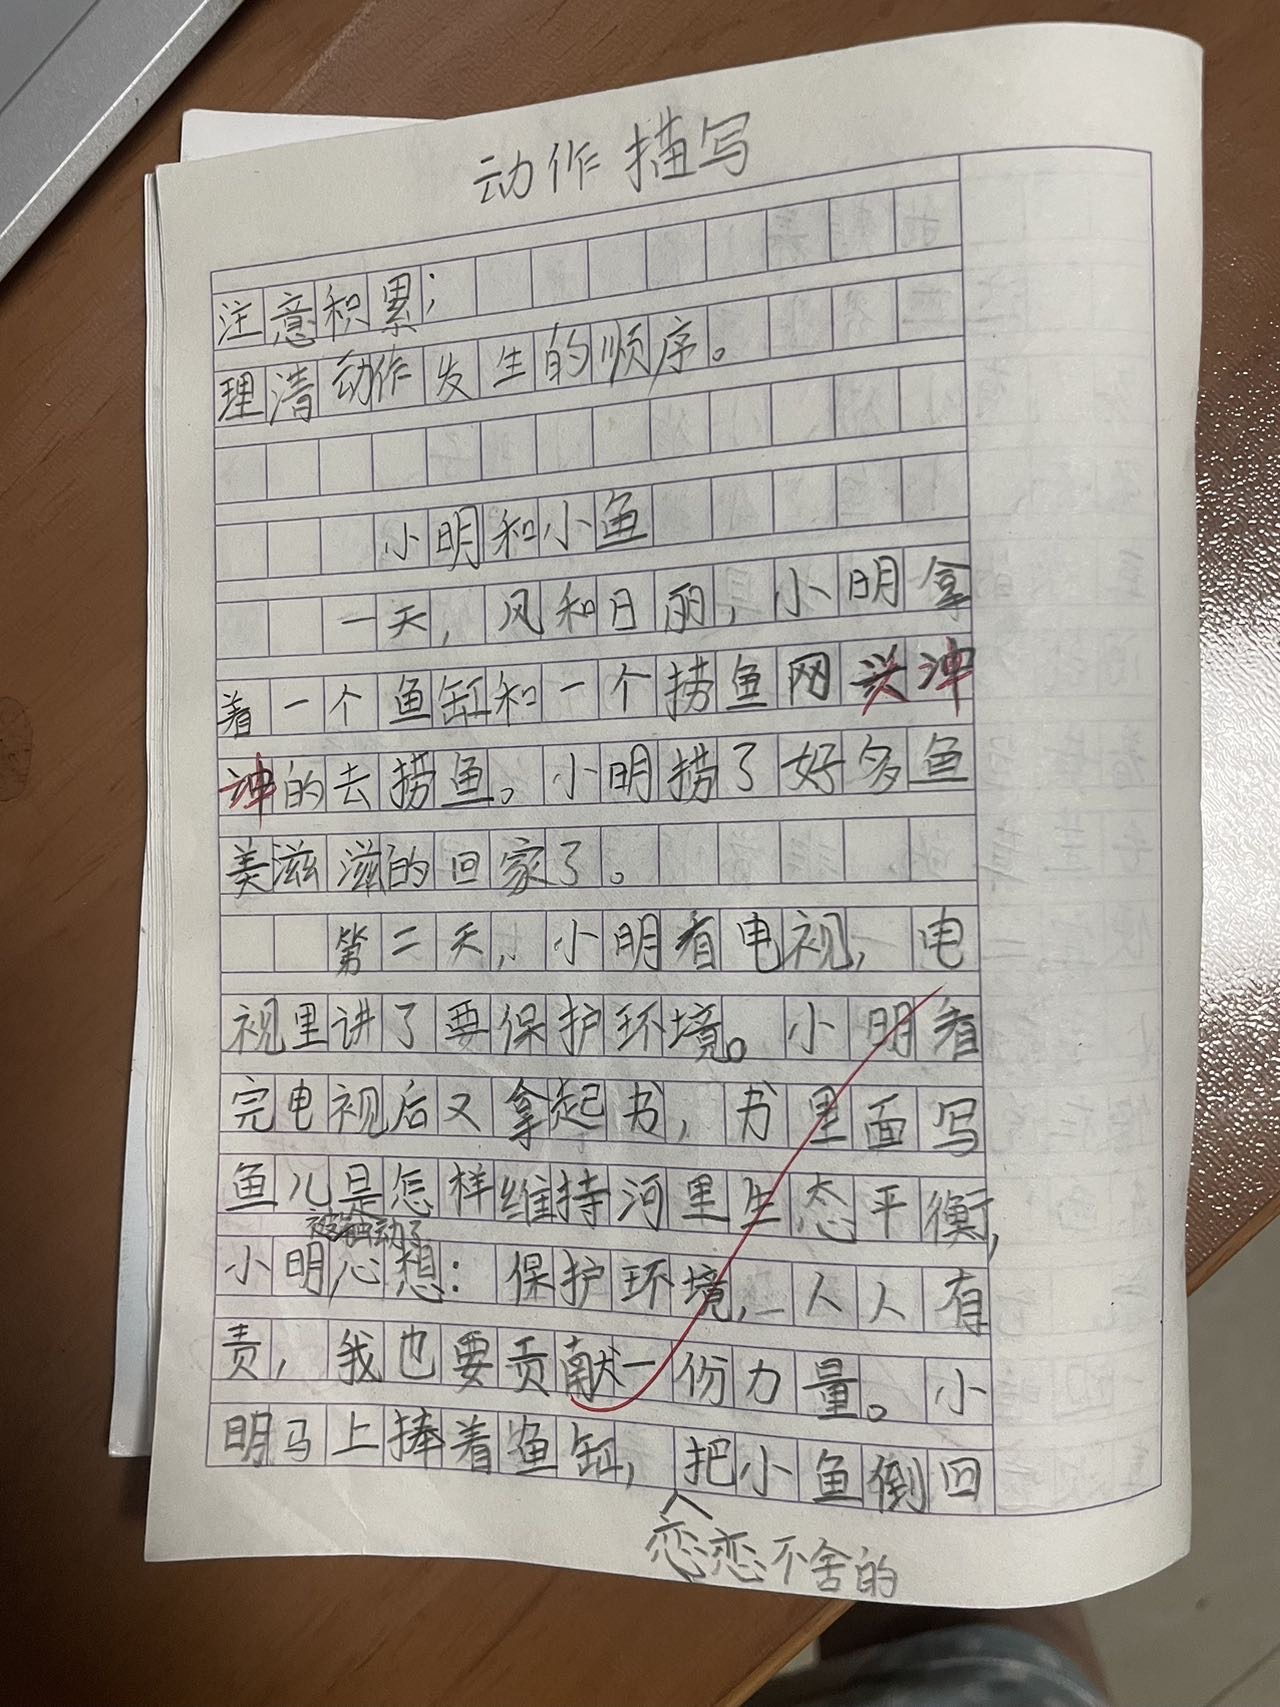 动作描写
注意积累;
理清动作发生的顺序。
小明和小鱼
一天,风和日丽,小明拿
着一个鱼缸和一个捞鱼网兴冲
冲的去捞鱼。小明捞了好多鱼
美滋滋的回家了。
第二天,小明看电视,电
视里讲了要保护环境。小明看
完电视后又拿起书,书里面写
鱼儿是怎样维持河里生态平衡,
被触动了
小明心想:保护环境,人人有
责,我也要贡献一份力量。小
明马上捧着鱼缸,把小鱼倒回
恋恋不舍的